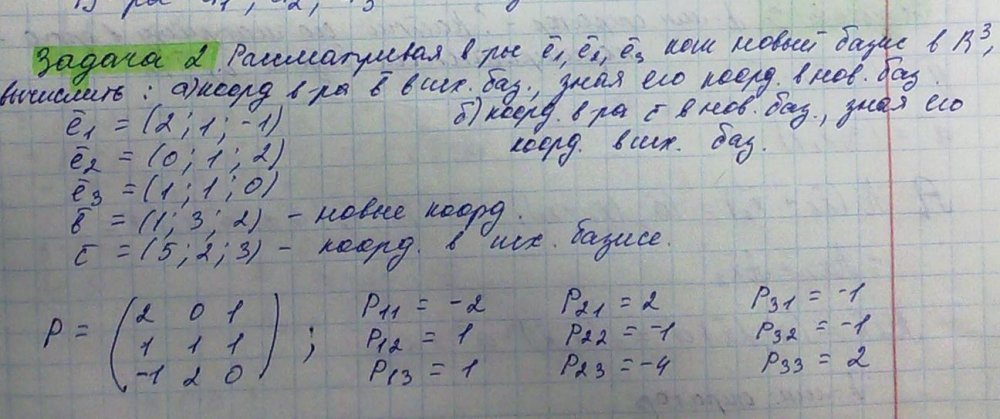 Задача 2. Рассматривая в-ры ē₁, ē₂, ē₃ как новый базис в R³,
вычислить: а) коорд в-ра b̄ в исх. баз., зная его коорд. в нов. баз.
б) коорд. в-ра c̄ в нов. баз., зная его
коорд. в исх. баз.
ē₁ = (2; 1; -1)
ē₂ = (0; 1; 2)
ē₃ = (1; 1; 0)
b̄ = (1; 3; 2) - новые коорд.
c̄ = (5; 2; 3) - коорд. в исх. базисе.
P = (2 0 1
1 1 1
-1 2 0);
P₁₁ = -2 P₂₁ = 2 P₃₁ = -1
P₁₂ = 1 P₂₂ = -1 P₃₂ = -1
P₁₃ = 1 P₂₃ = -4 P₃₃ = 2